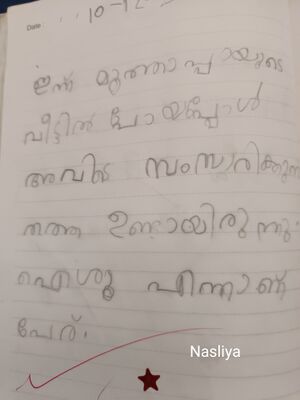 Date :
10-12
ഇന്ന് മുത്താപ്പായുടെ
വീട്ടിൽ പോയപ്പോൾ
അവിടെ സംസാരിക്കുന്ന
തത്ത ഉണ്ടായിരുന്നു.
ഐശു എന്നാണ്
പേര്.
Nasliya